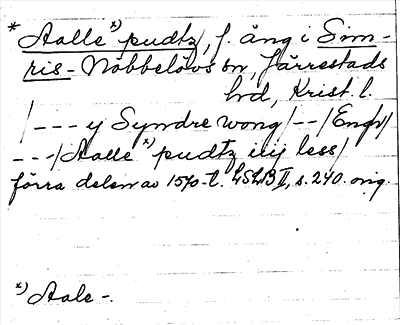 * Aalle x) pudtz, f. äng i Sim-
ris-Nöbbelövs sn, Järrestads
hrd, Krist. l.
/--- y Syndre wong/--/Engh/
---/Aalle x) pudtz iiij less/
förra delen av 1570-t. LSLB II, s. 240. orig.
x) Aale-.